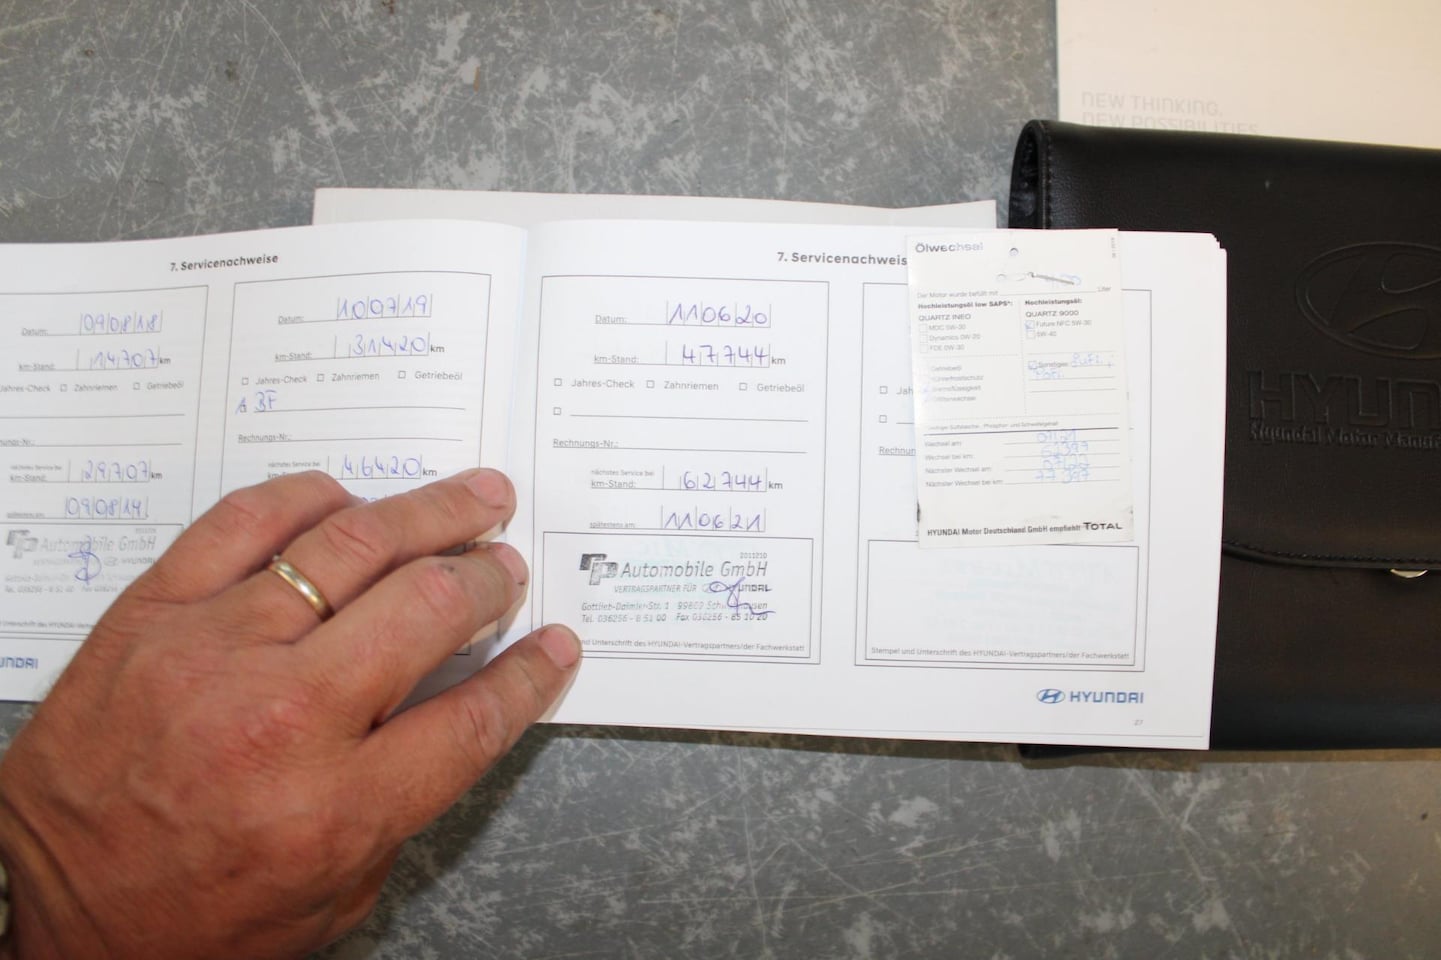 NEW THINKING.
NEW POSSIBILITIES.
HYUNDAI
Hyundai Motor
7. Servicenachweise
Datum: 09 08 18
km-Stand: 14707 km
Jahres-Check ☐ Zahnriemen ☐ Getriebeöl
nungs-Nr.:
nächstes Service bei
km-Stand: 29707 km
spätestens am: 09 08 19
Automobile GmbH
HYUNDAI
Unterschrift des HYUNDAI-Vertragspartners/der Fachwerkstatt
YUNDAI
Datum: 10 07 19
km-Stand: 31420 km
☐ Jahres-Check ☐ Zahnriemen ☐ Getriebeöl
BF
Rechnungs-Nr.:
nächstes Service bei
km-Stand: 46420 km
7. Servicenachweise
Datum: 11 06 20
km-Stand: 47744 km
☐ Jahres-Check ☐ Zahnriemen ☐ Getriebeöl
☐
Rechnungs-Nr.:
nächstes Service bei
km-Stand: 62744 km
spätestens am: 11 06 21
2011210
rp Automobile GmbH
VERTRAGSPARTNER FÜR HYUNDAI
Gottlieb-Daimler-Str. 1 99869
Tel. 036256 - 8 51 00 Fax 036256 - 85 10 20
nd Unterschrift des HYUNDAI-Vertragspartners/der Fachwerkstatt
☐ Jahres-Ch
☐
Rechnun
Stempel und Unterschrift des HYUNDAI-Vertragspartners/der Fachwerkstatt
HYUNDAI
27
Ölwechsel
Der Motor wurde befüllt mit Liter
Hochleistungsöl low SAPS*:
QUARTZ INEO
MDC 5W-30
Dynamics 0W-20
FDE 0W-30
Hochleistungsöl:
QUARTZ 9000
Future NFC 5W-30
5W-40
Getriebeöl
Kühlerfrostschutz
Bremsflüssigkeit
Filterwechsel
Sonstiges
Wechsel am:
Wechsel bei km:
Nächster Wechsel am:
Nächster Wechsel bei km: 77397
HYUNDAI Motor Deutschland GmbH empfiehlt TOTAL